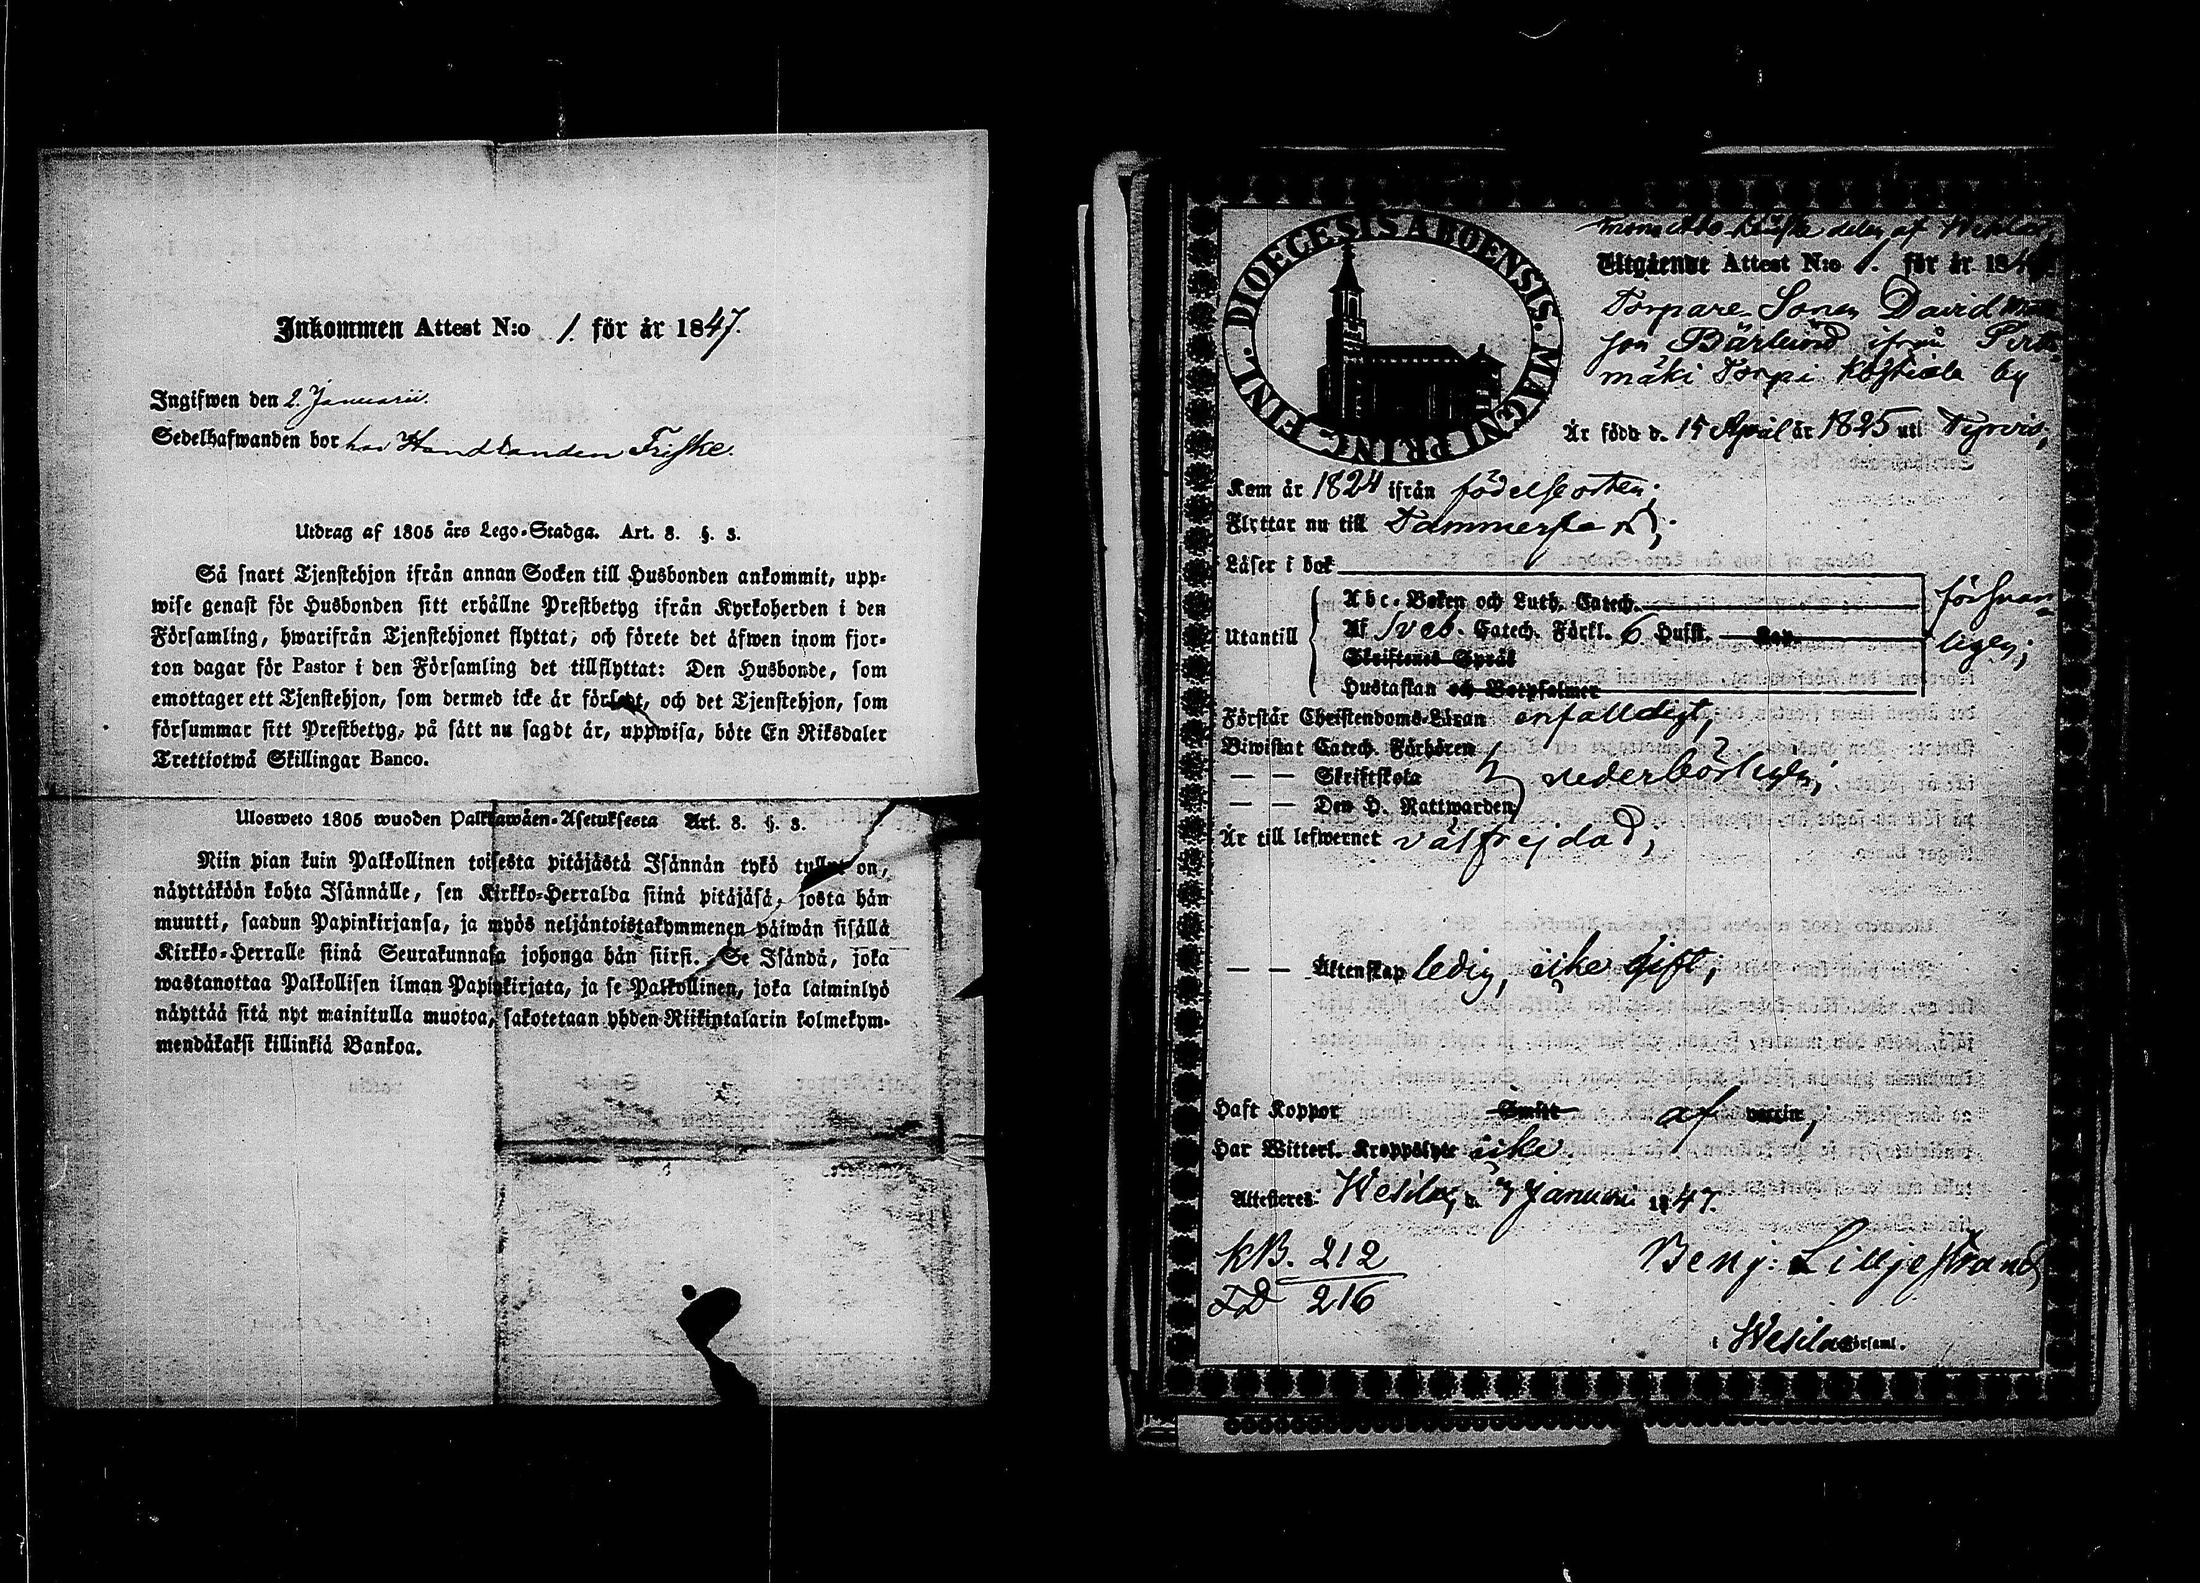 Inkommen Attest N:o 1. för år 1847.
Ingifwen den 2. Januarii.
Sedelhafwanden bor hos Handlanden Friske.
Utdrag af 1805 års Lego-Stadga. Art. 8. §. 3.
Så snart Tjenstehjon ifrån annan Socken till Husbonden ankommit, upp-
wise genast för Husbonden sitt erhållne Prestbetyg ifrån Kyrkoherden i den
Församling, hwarifrån Tjenstehjonet flyttat; och förete det äfwen inom fjor-
ton dagar för Pastor i den Församling det tillflyttat: Den Husbonde, som
emottager ett Tjenstehjon, som dermed icke är försedt, och det Tjenstehjon, som
försummar sitt Prestbetyg, på sätt nu sagdt är, uppwisa, böte En Riksdaler
Trettiotwå Skillingar Banco.
Ulosweto 1805 wuoden Palkkawäen-Asetuksesta Art. 8. §. 3.
Niin pian kuin Palkollinen toisesta pitäjästä Isännän tykö tullut on,
näyttäköön kohta Isännälle, sen Kirkko-Herralda siinä pitäjäsä, josta hän
muutti, saadun Papinkirjansa, ja myös neljäntoistakymmenen päiwän sisällä
Kirkko-Herralle siinä Seurakunnasa johonga hän siirsi. Se Isändä, joka
wastanottaa Palkollisen ilman Papinkirjata, ja se Palkollinen, joka laiminlyö
näyttää sitä nyt mainitulla muotoa, sakotetaan yhden Riikintalarin kolmekym-
mendäkaksi killinkiä Bankoa.
DIOECESIS ABOENSIS. MAGNI PRINC. FINL.
Utgående Attest N:o 1. för år 1847
Torpare Sonen David
son Bärlund ifrån
mäki Torp i by
Är född d. 15 April år 1825 uti Tyrvis,
Kom år 1824 ifrån födelseorten;
Flyttar nu till Tammerfors;
Läser i bok
Abc-Boken och Luth. Catech. försvar-
Utantill Af Sveb. Catech. Förkl. 6 Hufst. Kap. ligen;
Skriftenes Språk
Hustaflan och Botpsalmer
Förstår Christendoms-Läran enfaldigt,
Biwistat Catech. Förhören
— — Skriftskola vederbörligen;
— — Den H. Nattwarden
Är till lefwernet välfrejdad,
— — Äktenskap ledig, icke gift;
Haft Koppor Smitt af vaccin,
Har Witterl. Kroppslyte icke.
Attesteres. Wesilax, d. Januarii 1847.
KB. 212
216
Benj: Lilljestrand
i Wesilax Församl.